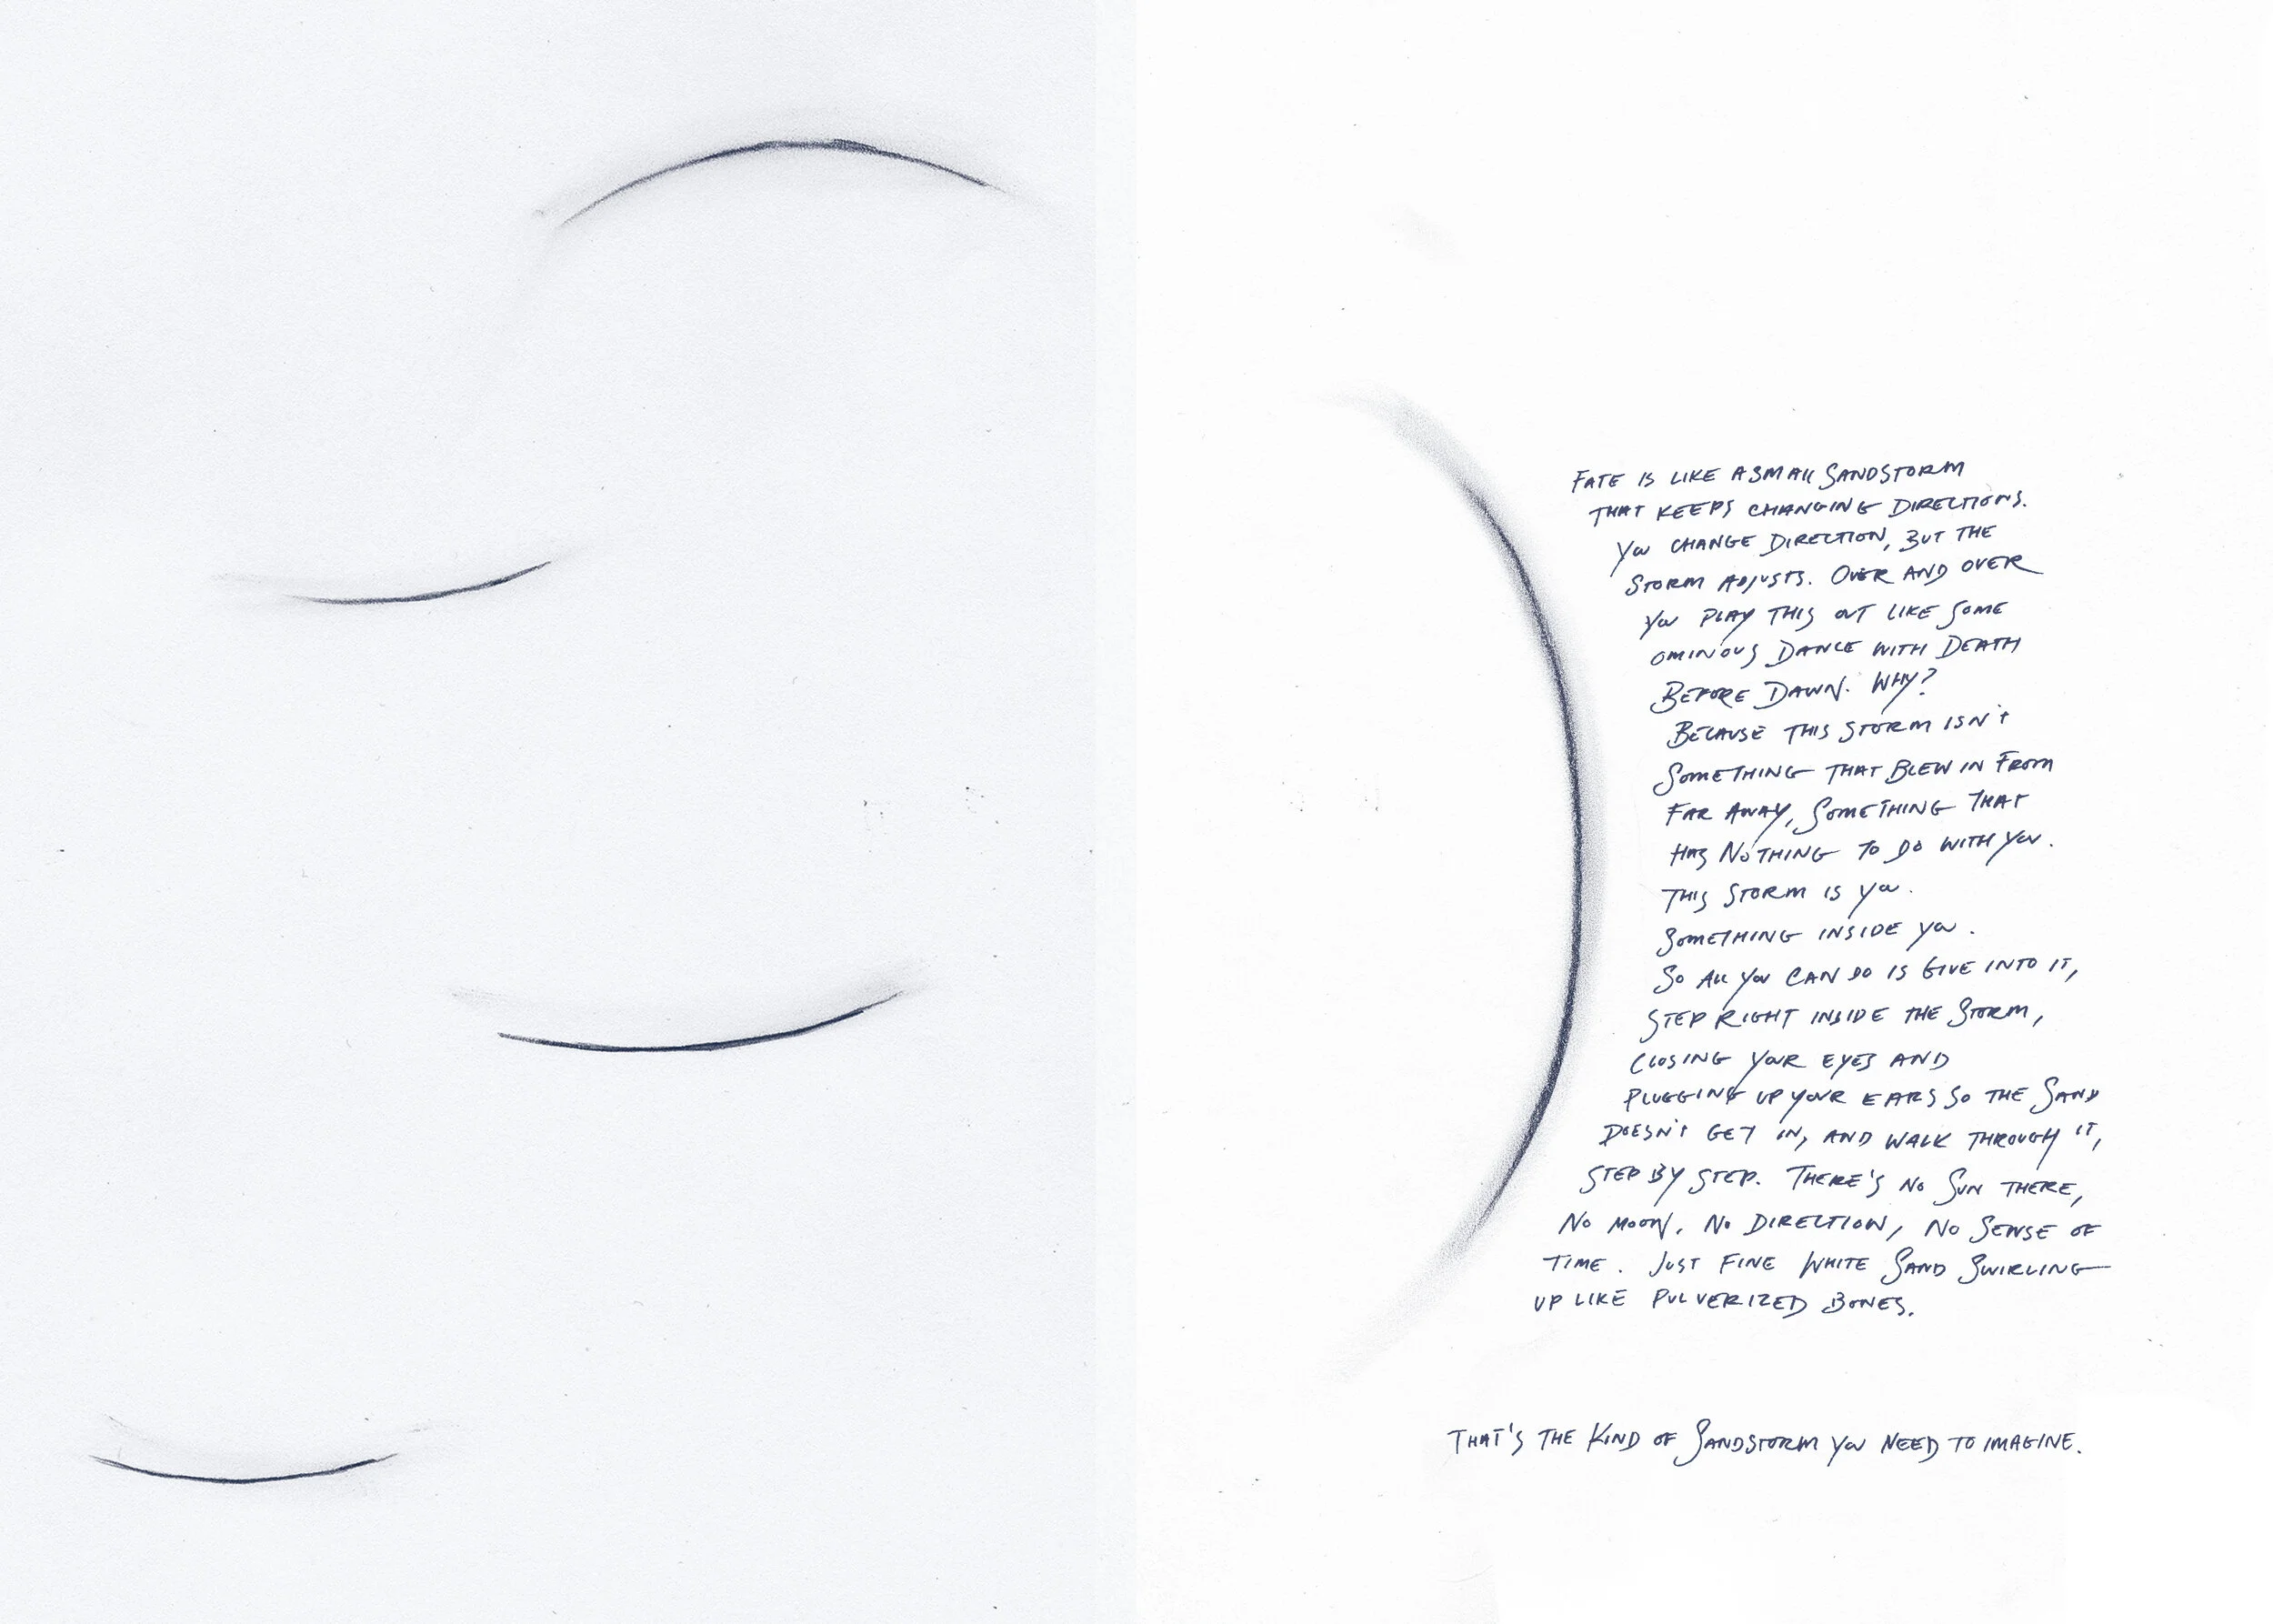 FATE IS LIKE A SMALL SANDSTORM
THAT KEEPS CHANGING DIRECTIONS.
YOU CHANGE DIRECTION, BUT THE
STORM ADJUSTS. OVER AND OVER
YOU PLAY THIS OUT LIKE SOME
OMINOUS DANCE WITH DEATH
BEFORE DAWN. WHY?
BECAUSE THIS STORM ISN'T
SOMETHING THAT BLEW IN FROM
FAR AWAY, SOMETHING THAT
HAS NOTHING TO DO WITH YOU.
THIS STORM IS YOU.
SOMETHING INSIDE YOU.
SO ALL YOU CAN DO IS GIVE INTO IT,
STEP RIGHT INSIDE THE STORM,
CLOSING YOUR EYES AND
PLUGGING UP YOUR EARS SO THE SAND
DOESN'T GET IN, AND WALK THROUGH IT,
STEP BY STEP. THERE'S NO SUN THERE,
NO MOON, NO DIRECTION, NO SENSE OF
TIME. JUST FINE WHITE SAND SWIRLING
UP LIKE PULVERIZED BONES.
THAT'S THE KIND OF SANDSTORM YOU NEED TO IMAGINE.